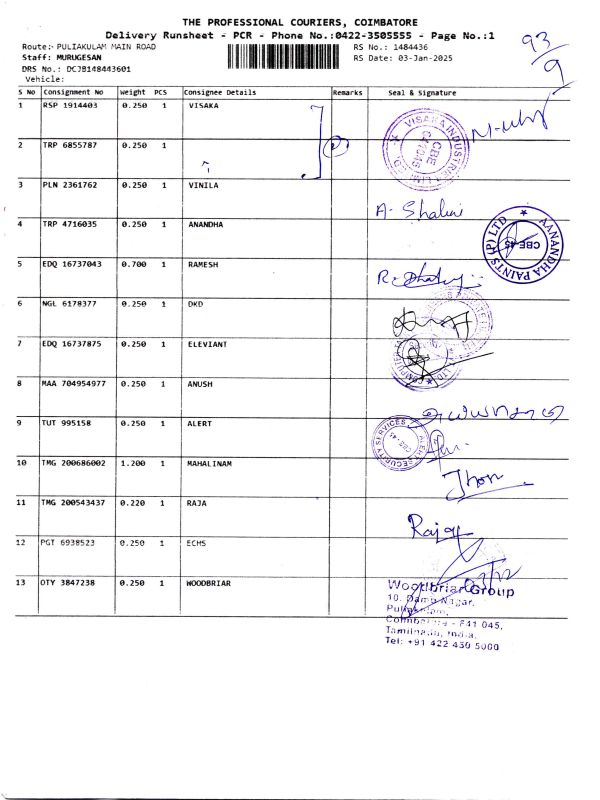 THE PROFESSIONAL COURIERS, COIMBATORE
Delivery Runsheet - PCR - Phone No.:0422-3505555 - Page No.:1
Route:- PULIAKULAM MAIN ROAD
RS No.: 1484436
Staff: MURUGESAN
RS Date: 03-Jan-2025
DRS No.: DCJB148443601
Vehicle:
93/9
S No Consignment No Weight PCS Consignee Details Remarks Seal & Signature
1 RSP 1914403 0.250 1 VISAKA
2 TRP 6855787 0.250 1
3 PLN 2361762 0.250 1 VINILA
4 TRP 4716035 0.250 1 ANANDHA
5 EDQ 16737043 0.700 1 RAMESH
6 NGL 6178377 0.250 1 DKD
7 EDQ 16737875 0.250 1 ELEVIANT
8 MAA 704954977 0.250 1 ANUSH
9 TUT 995158 0.250 1 ALERT
10 TMG 200686002 1.200 1 MAHALINAM
11 TMG 200543437 0.220 1 RAJA
12 PGT 6938523 0.250 1 ECHS
13 OTY 3847238 0.250 1 WOODBRIAR
VISAKA INDUSTRIES LIMITED
CBE
641045
A. Shalini
AANANDHA PAINTS (P) LTD
CBE-45
ALERT SECURITY SERVICES
Jhon
Raja
Woodbriar Group
10, Damu Nagar,
Puliakulam,
Coimbatore - 641 045,
Tamilnadu, India.
Tel: +91 422 430 5000